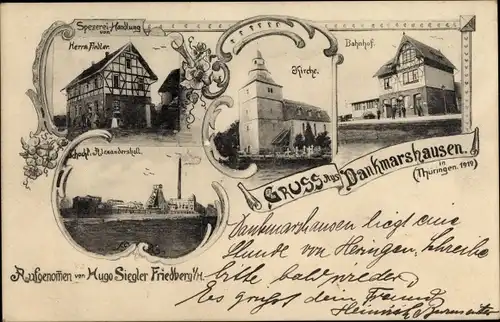 Spezerei-Handlung
von
Herrn Fiedler.
Kirche.
Bahnhof.
Schacht Alexandershall.
GRUSS aus Dankmarshausen.
in
(Thüringen. 1919)
Aufgenommen von Hugo Siegler Friedberg i/H.
Dankmarshausen liegt eine
Stunde von Heringen, Schreibe
bitte bald wieder
Es grüsst dein Freund
Heinrich